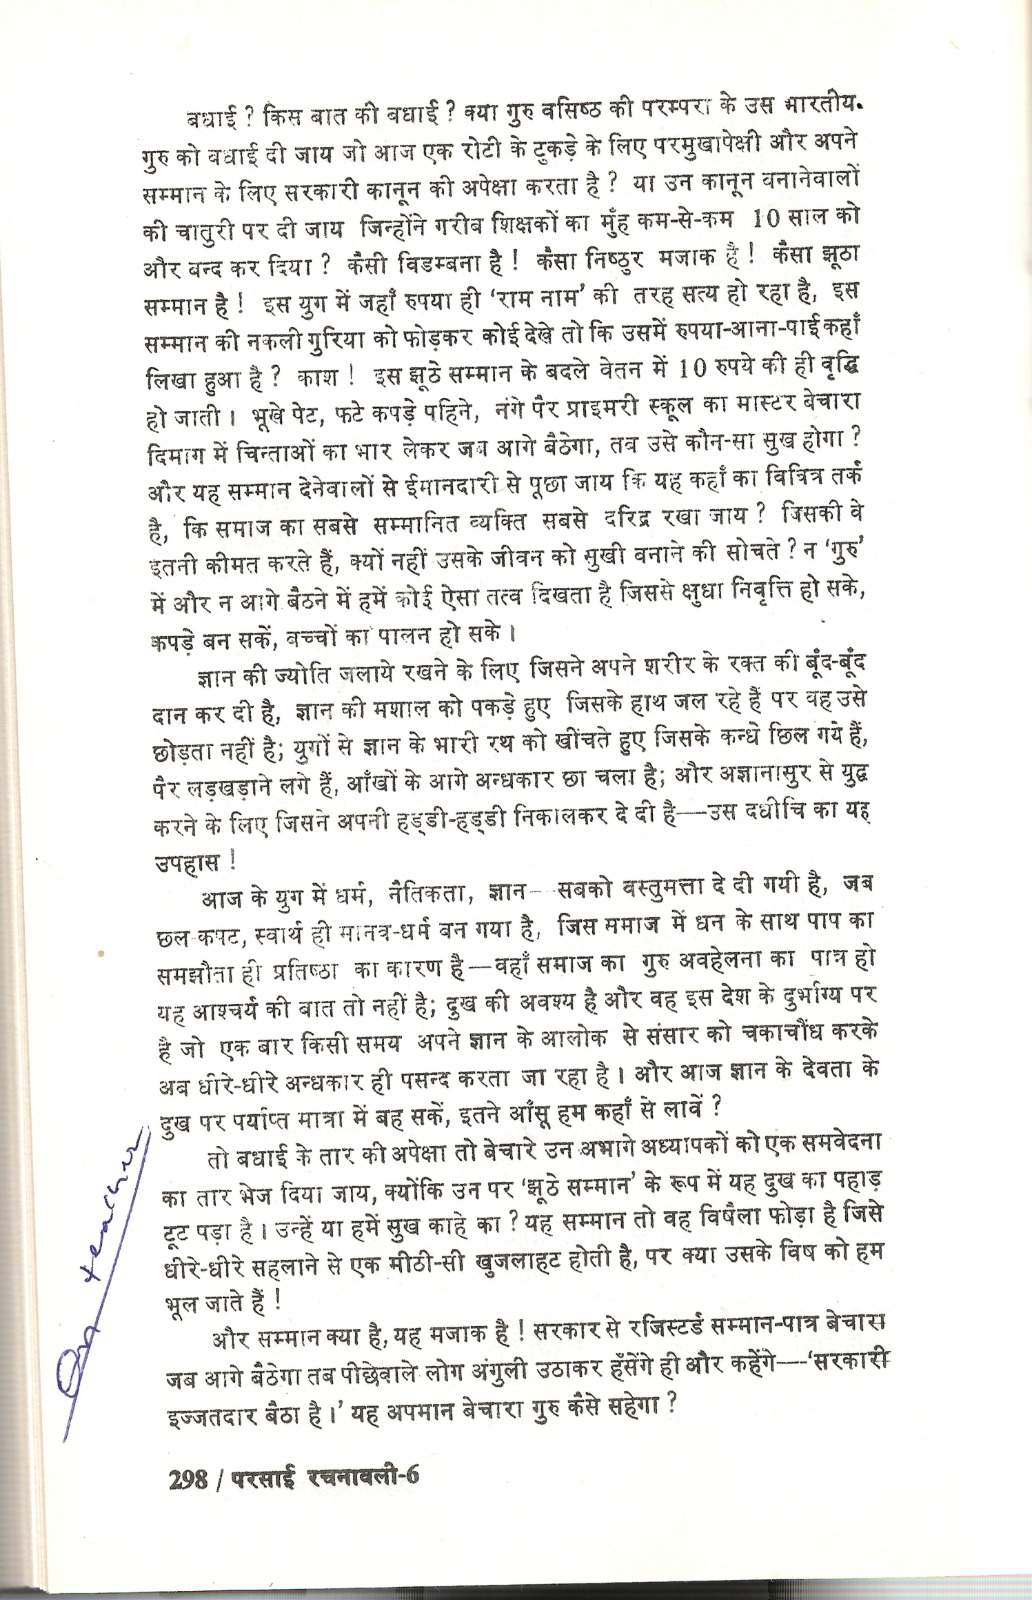 बधाई ? किस बात की बधाई ? क्या गुरु वसिष्ठ की परम्परा के उस भारतीय.
गुरु को बधाई दी जाय जो आज एक रोटी के टुकड़े के लिए परमुखापेक्षी और अपने
सम्मान के लिए सरकारी कानून की अपेक्षा करता है ? या उन कानून बनानेवालों
की चातुरी पर दी जाय जिन्होंने गरीब शिक्षकों का मुँह कम-से-कम 10 साल को
और बन्द कर दिया ? कैसी विडम्बना है ! कैसा निष्ठुर मजाक है ! कैसा झूठा
सम्मान है ! इस युग में जहाँ रुपया ही 'राम नाम' की तरह सत्य हो रहा है, इस
सम्मान की नकली गुरिया को फोड़कर कोई देखे तो कि उसमें रुपया-आना-पाई कहाँ
लिखा हुआ है ? काश ! इस झूठे सम्मान के बदले वेतन में 10 रुपये की ही वृद्धि
हो जाती । भूखे पेट, फटे कपड़े पहिने, नंगे पैर प्राइमरी स्कूल का मास्टर बेचारा
दिमाग में चिन्ताओं का भार लेकर जब आगे बैठेगा, तब उसे कौन-सा सुख होगा ?
और यह सम्मान देनेवालों से ईमानदारी से पूछा जाय कि यह कहाँ का विचित्र तर्क
है, कि समाज का सबसे सम्मानित व्यक्ति सबसे दरिद्र रखा जाय ? जिसकी वे
इतनी कीमत करते हैं, क्यों नहीं उसके जीवन को सुखी बनाने की सोचते ? न 'गुरु'
में और न आगे बैठने में हमें कोई ऐसा तत्व दिखता है जिससे क्षुधा निवृत्ति हो सके,
कपड़े बन सकें, बच्चों का पालन हो सके ।
ज्ञान की ज्योति जलाये रखने के लिए जिसने अपने शरीर के रक्त की बूँद-बूँद
दान कर दी है, ज्ञान की मशाल को पकड़े हुए जिसके हाथ जल रहे हैं पर वह उसे
छोड़ता नहीं है; युगों से ज्ञान के भारी रथ को खींचते हुए जिसके कन्धे छिल गये हैं,
पैर लड़खड़ाने लगे हैं, आँखों के आगे अन्धकार छा चला है; और अज्ञानासुर से युद्ध
करने के लिए जिसने अपनी हड्डी-हड्डी निकालकर दे दी है—उस दधीचि का यह
उपहास !
आज के युग में धर्म, नैतिकता, ज्ञान—सबको वस्तुमत्ता दे दी गयी है, जब
छल-कपट, स्वार्थ ही मानव-धर्म बन गया है, जिस समाज में धन के साथ पाप का
समझौता ही प्रतिष्ठा का कारण है—वहाँ समाज का गुरु अवहेलना का पात्र हो
यह आश्चर्य की बात तो नहीं है; दुख की अवश्य है और वह इस देश के दुर्भाग्य पर
है जो एक बार किसी समय अपने ज्ञान के आलोक से संसार को चकाचौंध करके
अब धीरे-धीरे अन्धकार ही पसन्द करता जा रहा है । और आज ज्ञान के देवता के
दुख पर पर्याप्त मात्रा में बह सकें, इतने आँसू हम कहाँ से लावें ?
तो बधाई के तार की अपेक्षा तो बेचारे उन अभागे अध्यापकों को एक समवेदना
का तार भेज दिया जाय, क्योंकि उन पर 'झूठे सम्मान' के रूप में यह दुख का पहाड़
टूट पड़ा है । उन्हें या हमें सुख काहे का ? यह सम्मान तो वह विषैला फोड़ा है जिसे
धीरे-धीरे सहलाने से एक मीठी-सी खुजलाहट होती है, पर क्या उसके विष को हम
भूल जाते हैं !
और सम्मान क्या है, यह मजाक है ! सरकार से रजिस्टर्ड सम्मान-पात्र बेचारा
जब आगे बैठेगा तब पीछेवाले लोग अंगुली उठाकर हँसेंगे ही और कहेंगे—'सरकारी
इज्जतदार बैठा है ।' यह अपमान बेचारा गुरु कैसे सहेगा ?
298 / परसाई रचनावली-6
teacher